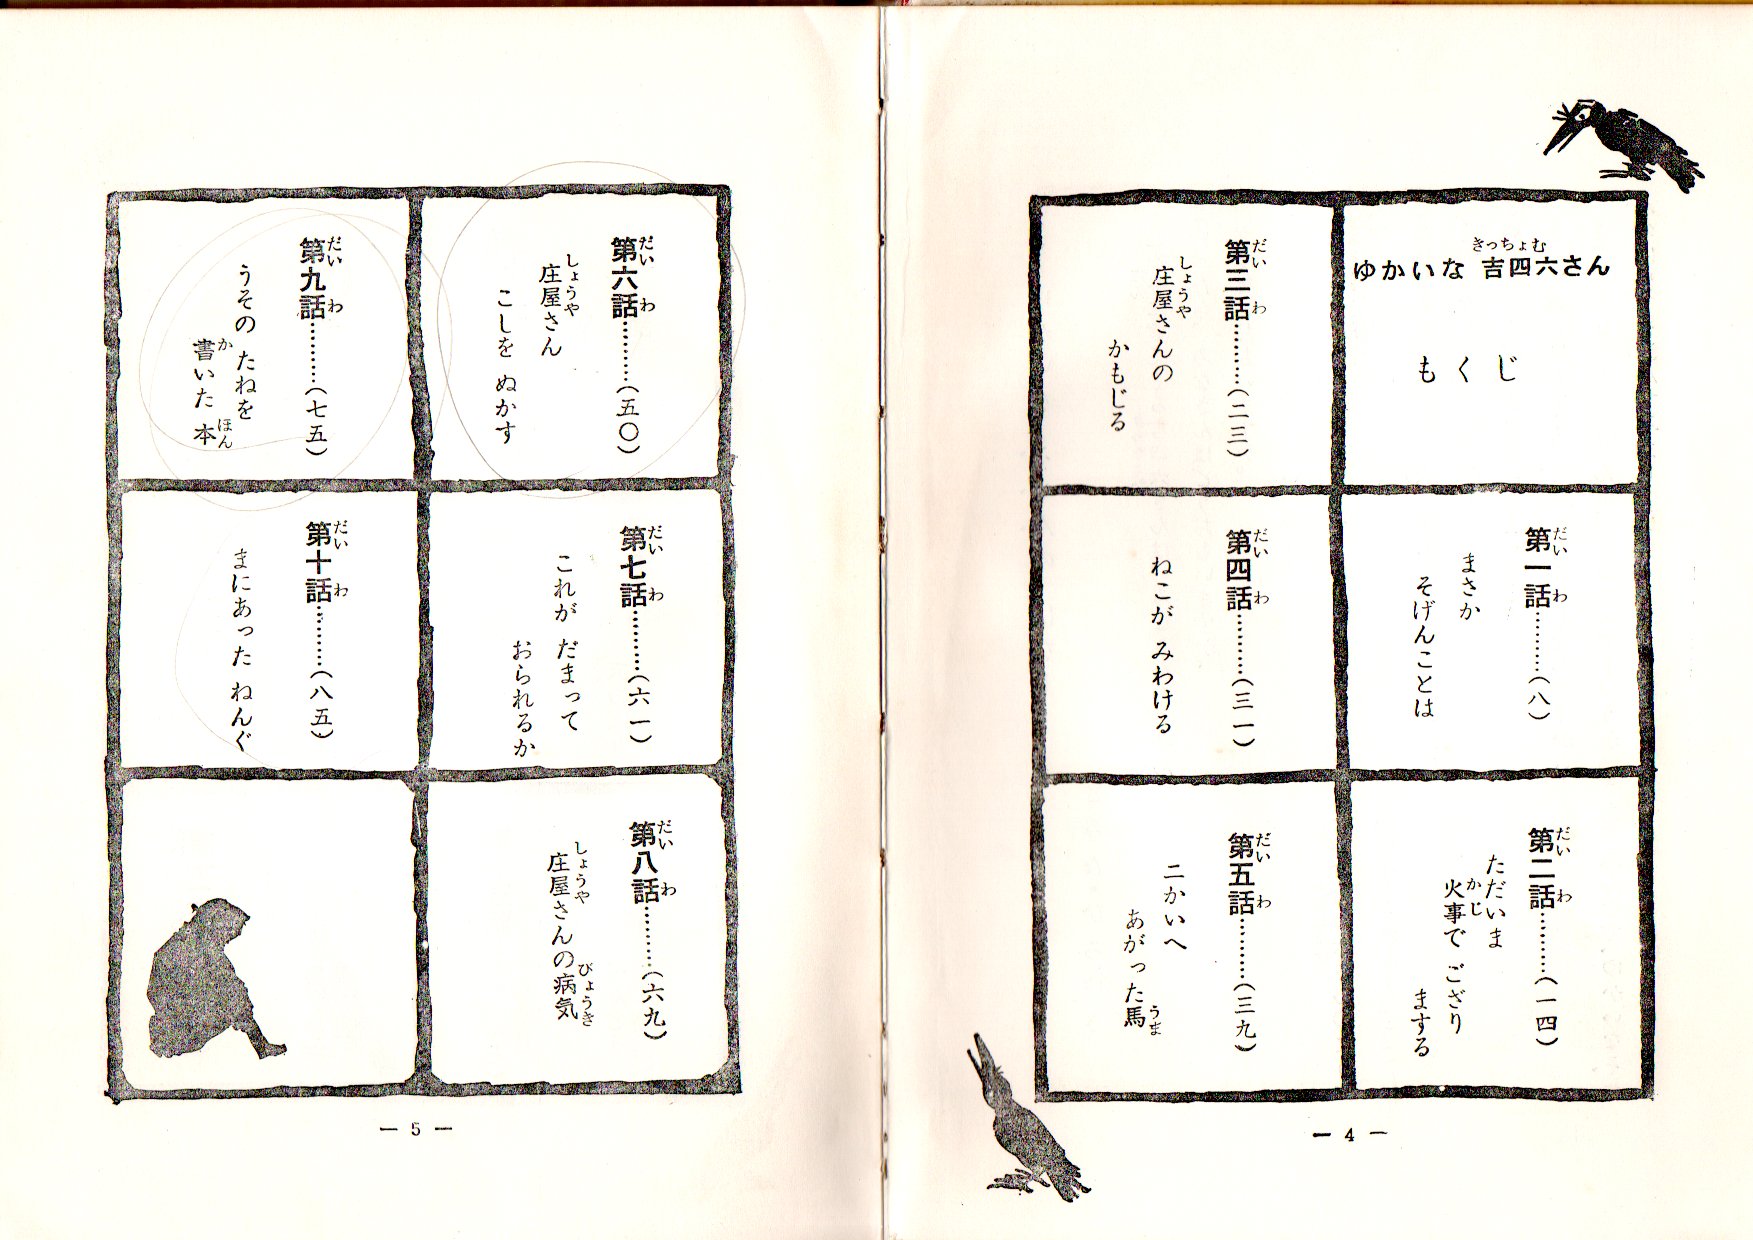 ゆかいな 吉四六さん
きっちょむ
もくじ
第一話………(八)
だい わ
まさか
そげんことは
第二話………(一四)
だい わ
ただいま
火事で ござり
かじ
まする
第三話………(二三)
だい わ
庄屋さんの
しょうや
かもじる
第四話………(三一)
だい わ
ねこが みわける
第五話………(三九)
だい わ
二かいへ
あがった馬
うま
— 4 —
第六話………(五〇)
だい わ
庄屋さん
しょうや
こしを ぬかす
第七話………(六一)
だい わ
これが だまって
おられるか
第八話………(六九)
だい わ
庄屋さんの病気
しょうや びょうき
第九話………(七五)
だい わ
うその たねを
書いた 本
か ほん
第十話………(八五)
だい わ
まにあった ねんぐ
— 5 —